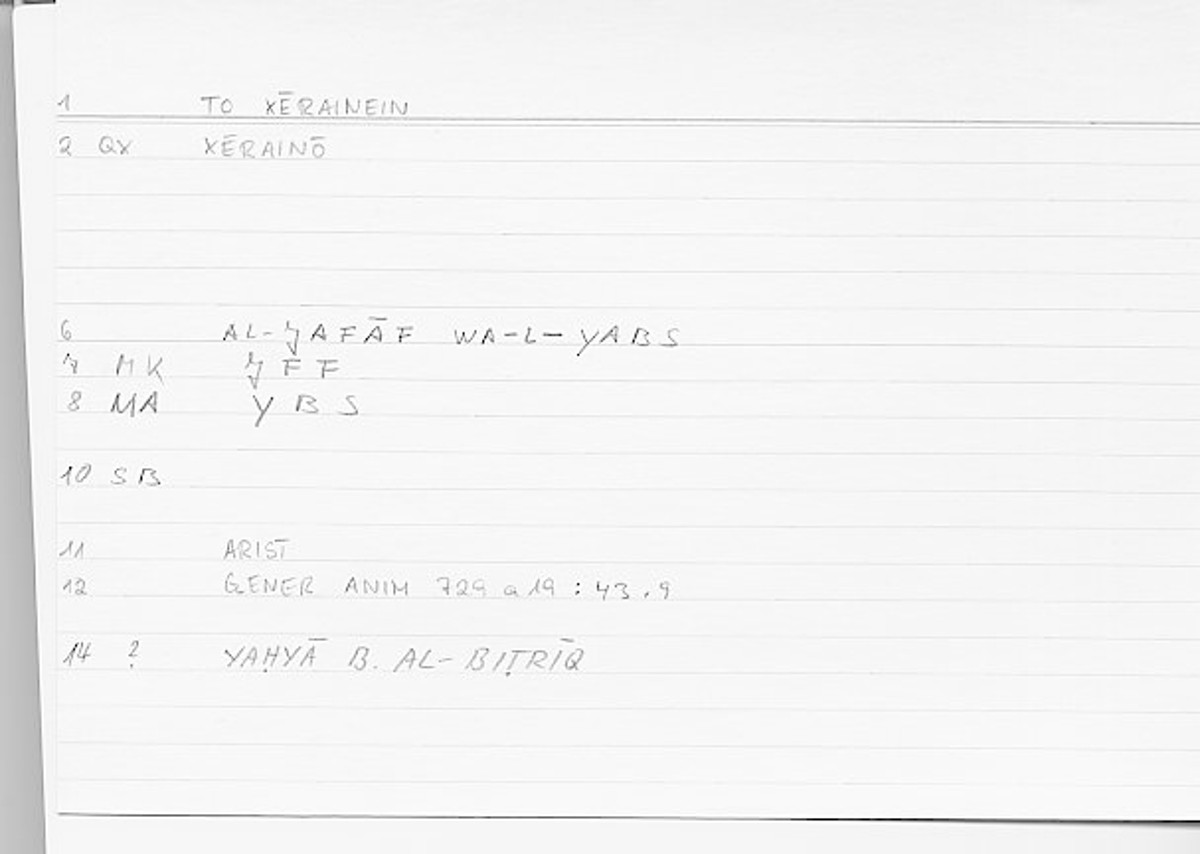 1 TO XĒRAINEIN
2 QX XĒRAINŌ
6 AL-ǦAFĀF WA-L-YABS
7 MK ǦFF
8 MA YBS
10 SB
11 ARIST
12 GENER ANIM 729 a 19 : 43.9
14 ? YAḤYĀ B. AL-BIṬRĪQ